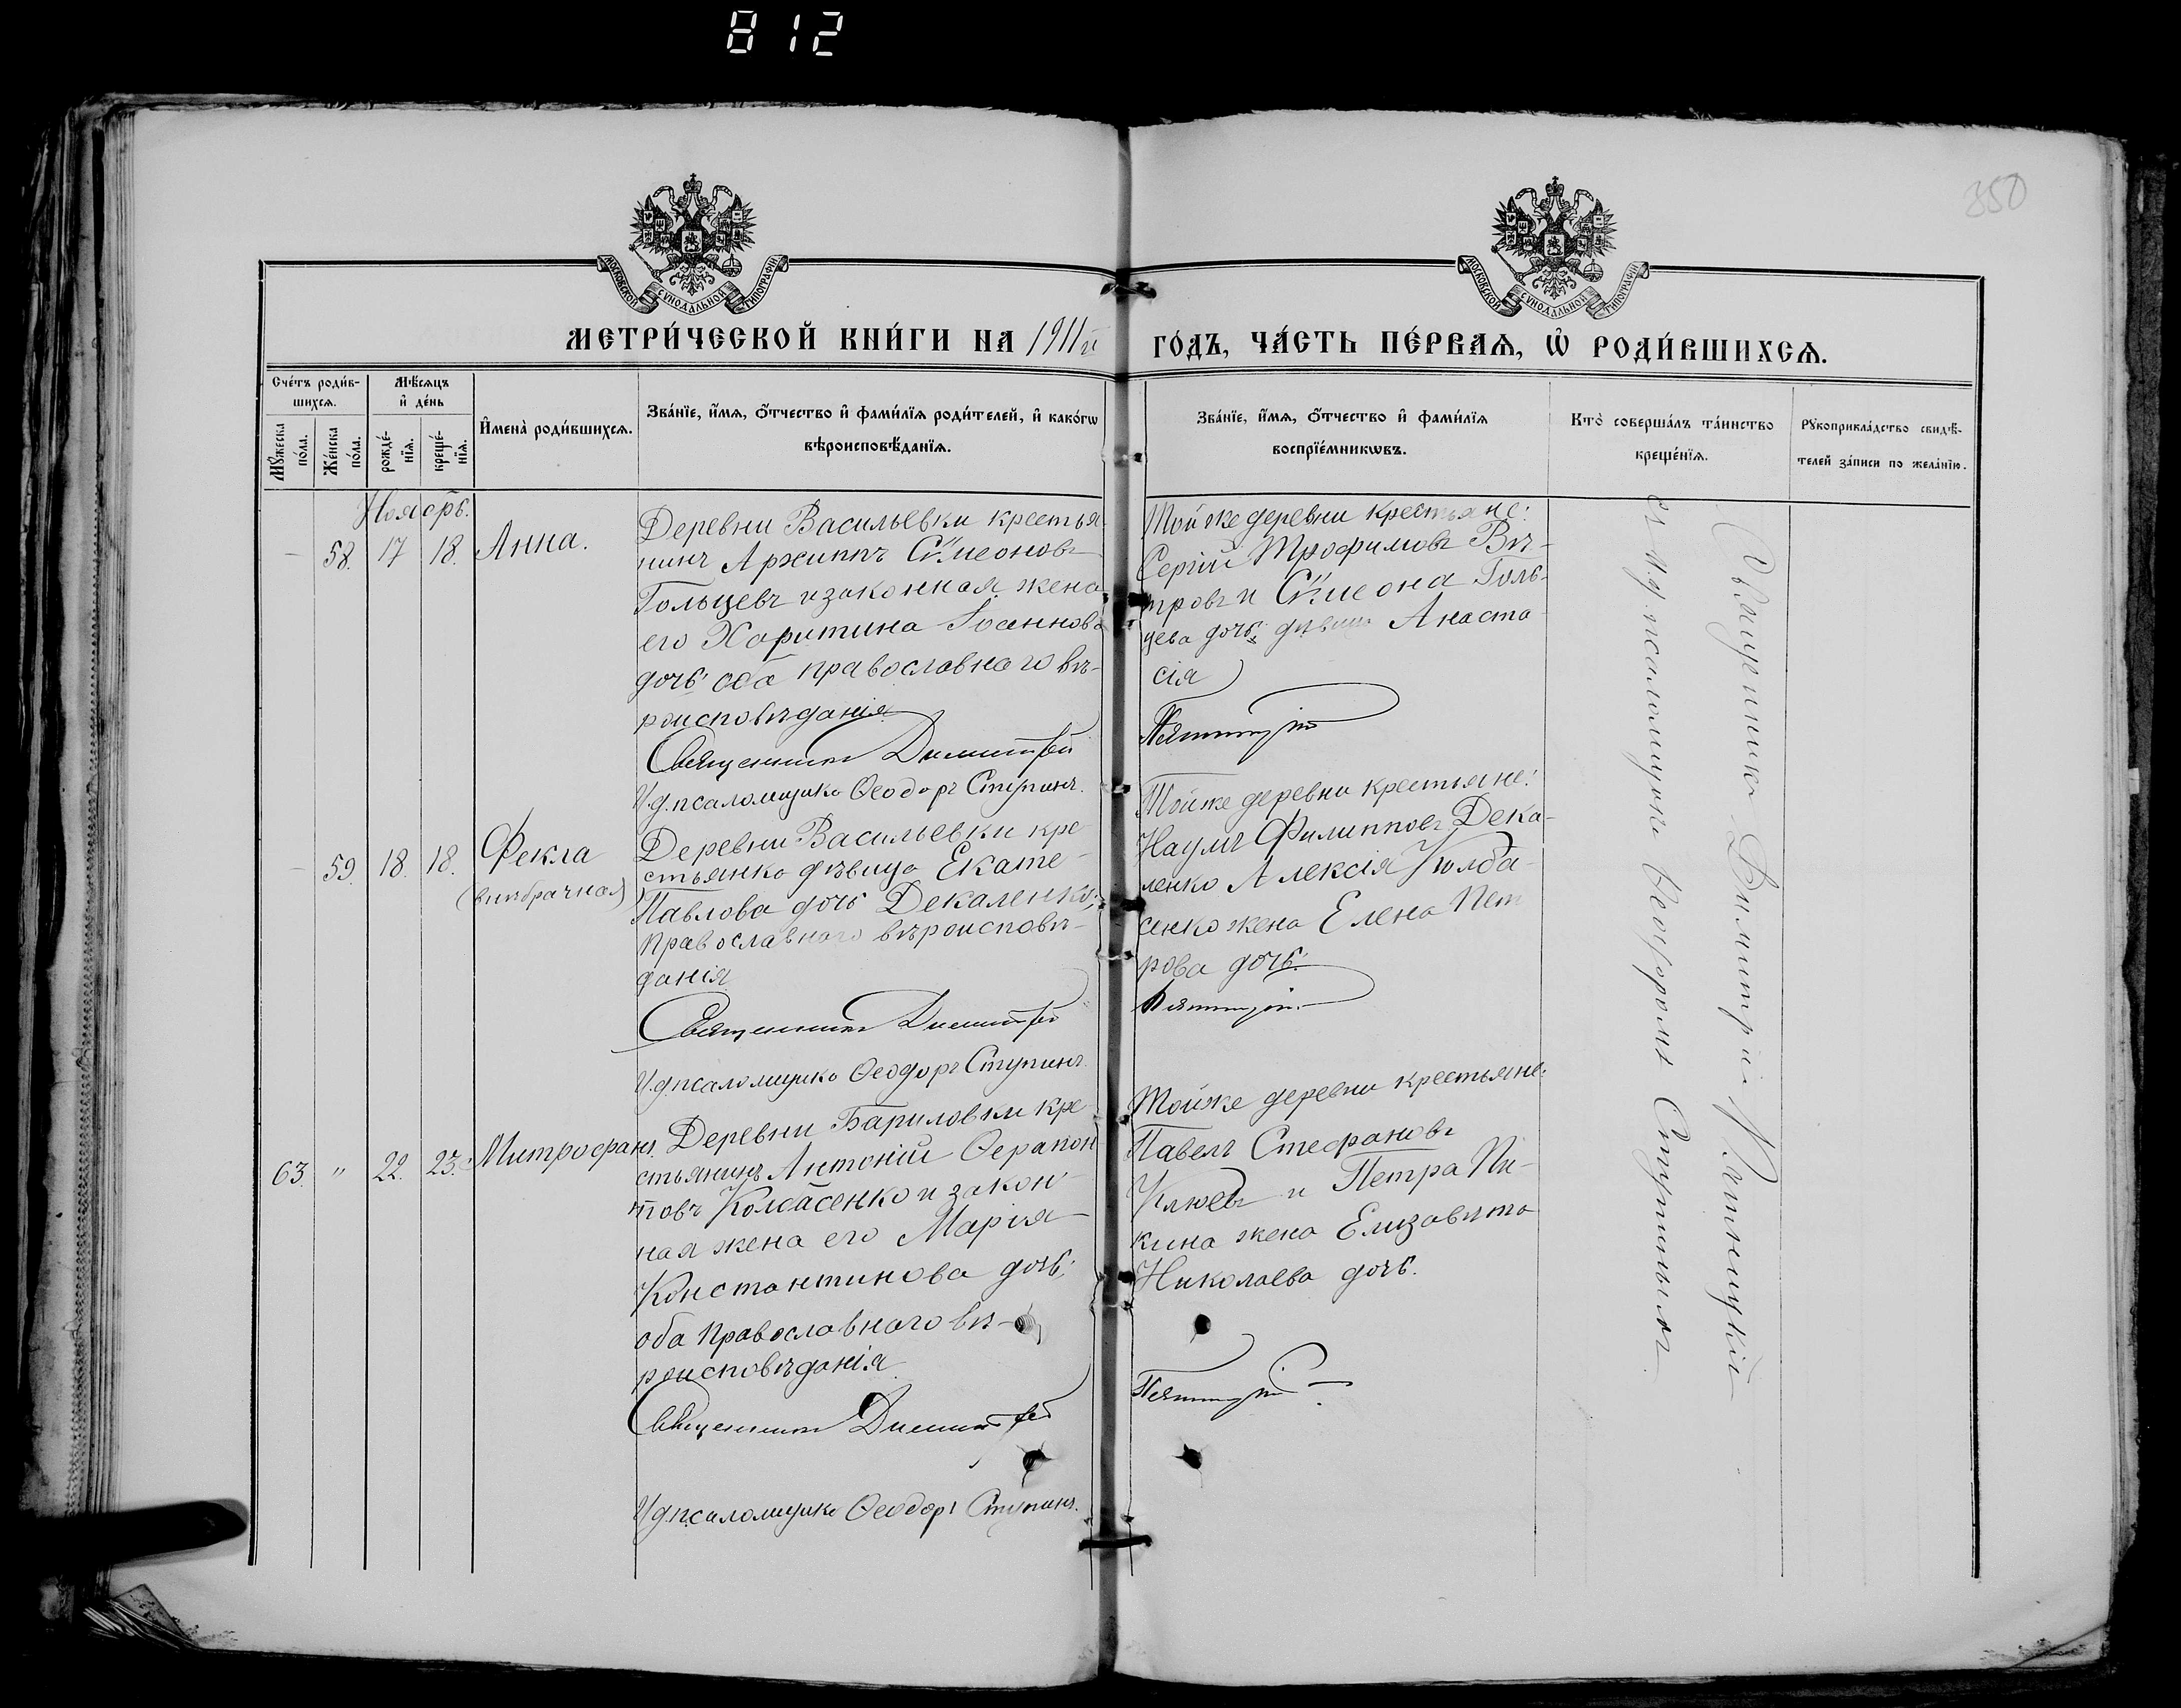 812
350
МОСКОВСКОЙ СѴНОДАЛЬНОЙ ТИПОГРАФІИ
МОСКОВСКОЙ СѴНОДАЛЬНОЙ ТИПОГРАФІИ
МЕТРИ́ЧЕСКОЙ КНИ́ГИ НА 1911й ГО́ДЪ, ЧА́СТЬ ПЕ́РВАѦ, Ѡ҆ РОДИ́ВШИХСѦ.
Сче́тъ роди́в-
шихсѧ.
Мꙋ́жеска по́ла.
Же́нска по́ла.
Мѣ́сѧцъ
и҆ де́нь
рожде́-
нїѧ.
креще́-
нїѧ.
И҆мена̀ роди́вшихсѧ.
Зва́нїе, и҆́мѧ, ѻ҆́тчество и҆ фами́лїѧ роди́телей, и҆ како́гѡ
вѣроисповѣ́данїѧ.
Зва́нїе, и҆́мѧ, ѻ҆́тчество и҆ фами́лїѧ
воспрїе́мникѡвъ.
Кто̀ соверша́лъ та́инство
креще́нїѧ.
Рꙋкоприкла́дство свидѣ́-
телей за́писи по жела́нїю.
Ноябрь.
— 58. 17 18. Анна.
Деревни Васильевки крестья-
нинъ Архиппъ Сѵмеоновъ
Гольцевъ и законная жена
его Харитина Іоаннова
дочь оба православнаго вѣ-
роисповѣданія
Священникъ Димитрій
И.д. псаломщика Ѳеодоръ Ступинъ.
Тойже деревни крестьяне:
Сергій Трофимовъ Вѣ-
тровъ и Сѵмеона Голь-
цева дочь девица Анаста-
сія
Пятницкій
— 59. 18. 18. Фекла
(внѣбрачная)
Деревни Васильевки кре-
стьянка дѣвица Екате-
Павлова дочь Декаленко;
Православнаго вѣроисповѣ-
данія
Священникъ Димитрій
И.д. псаломщика Ѳеодоръ Ступинъ
Тойже деревни крестьяне:
Наумъ Филипповъ Дека-
ленко Алексія Колба-
сенко жена Елена Пет
рова дочь.
Пятницкій.
63. " 22. 23. Митрофанъ.
Деревни Бариловки кре-
стьянинъ Антоній Ѳерапон
товъ Колбасенко и закон
ная жена его Марія
Константинова дочь;
оба Православнаго вѣ-
роисповѣданія
Священникъ Димитрій
И.д. псаломщика Ѳеодоръ Ступинъ.
Тойже деревни крестьяне:
Павелъ Стефановъ
Клюевъ и Петра Пи-
кина жена Елизавета
Николаева дочь.
Пятницкій
Священникъ Димитрій Пятницкій
съ и.д. псаломщика Ѳеодоромъ Ступинымъ.